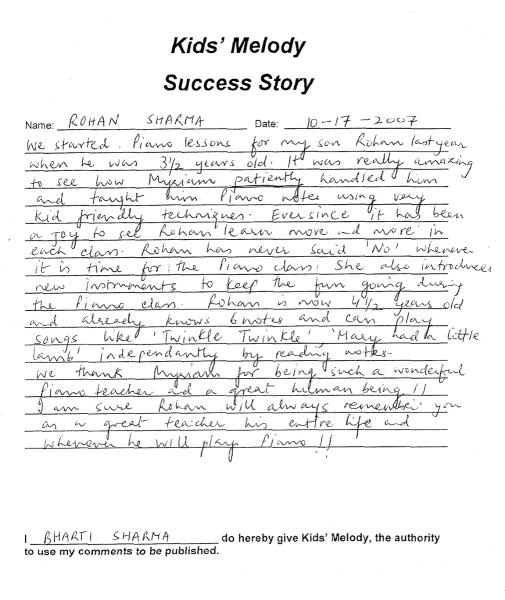 Kids' Melody
Success Story
Name: ROHAN SHARMA Date: 10-17-2007
We started Piano lessons for my son Rohan last year
when he was 3½ years old. It was really amazing
to see how Myriam patiently handled him
and taught him Piano notes using very
kid friendly techniques. Ever since it has been
a JOY to see Rohan learn more and more in
each class. Rohan has never said 'No' whenever
it is time for the Piano class. She also introduces
new instruments to keep the fun going during
the Piano class. Rohan is now 4½ years old
and already knows 6 notes and can play
songs like 'Twinkle Twinkle', 'Mary had a little
lamb' independantly by reading notes.
We thank Myriam for being such a wonderful
Piano teacher and a great human being !!
I am sure Rohan will always remember you
as a great teacher his entire life and
whenever he will play Piano !!
I BHARTI SHARMA do hereby give Kids' Melody, the authority
to use my comments to be published.